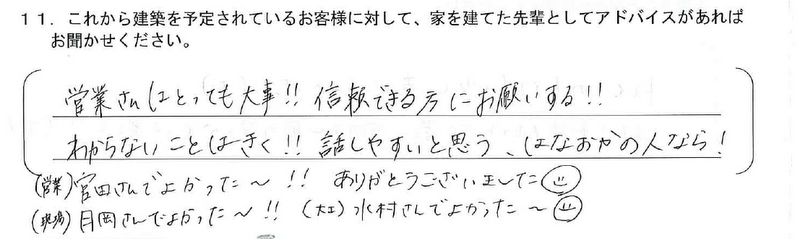 11．これから建築を予定されているお客様に対して、家を建てた先輩としてアドバイスがあれば
お聞かせください。
営業さんはとっても大事!! 信頼できる方にお願いする!!
わからないことはきく!! 話しやすいと思う、はなおかの人なら!
(営業)宮田さんでよかった〜!! ありがとうございました☺
(現場)月岡さんでよかった〜!! (大工)水村さんでよかった〜☺